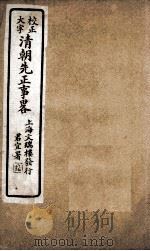 校正
大字
清朝先正事畧
上海文瑞樓發行
君宜署